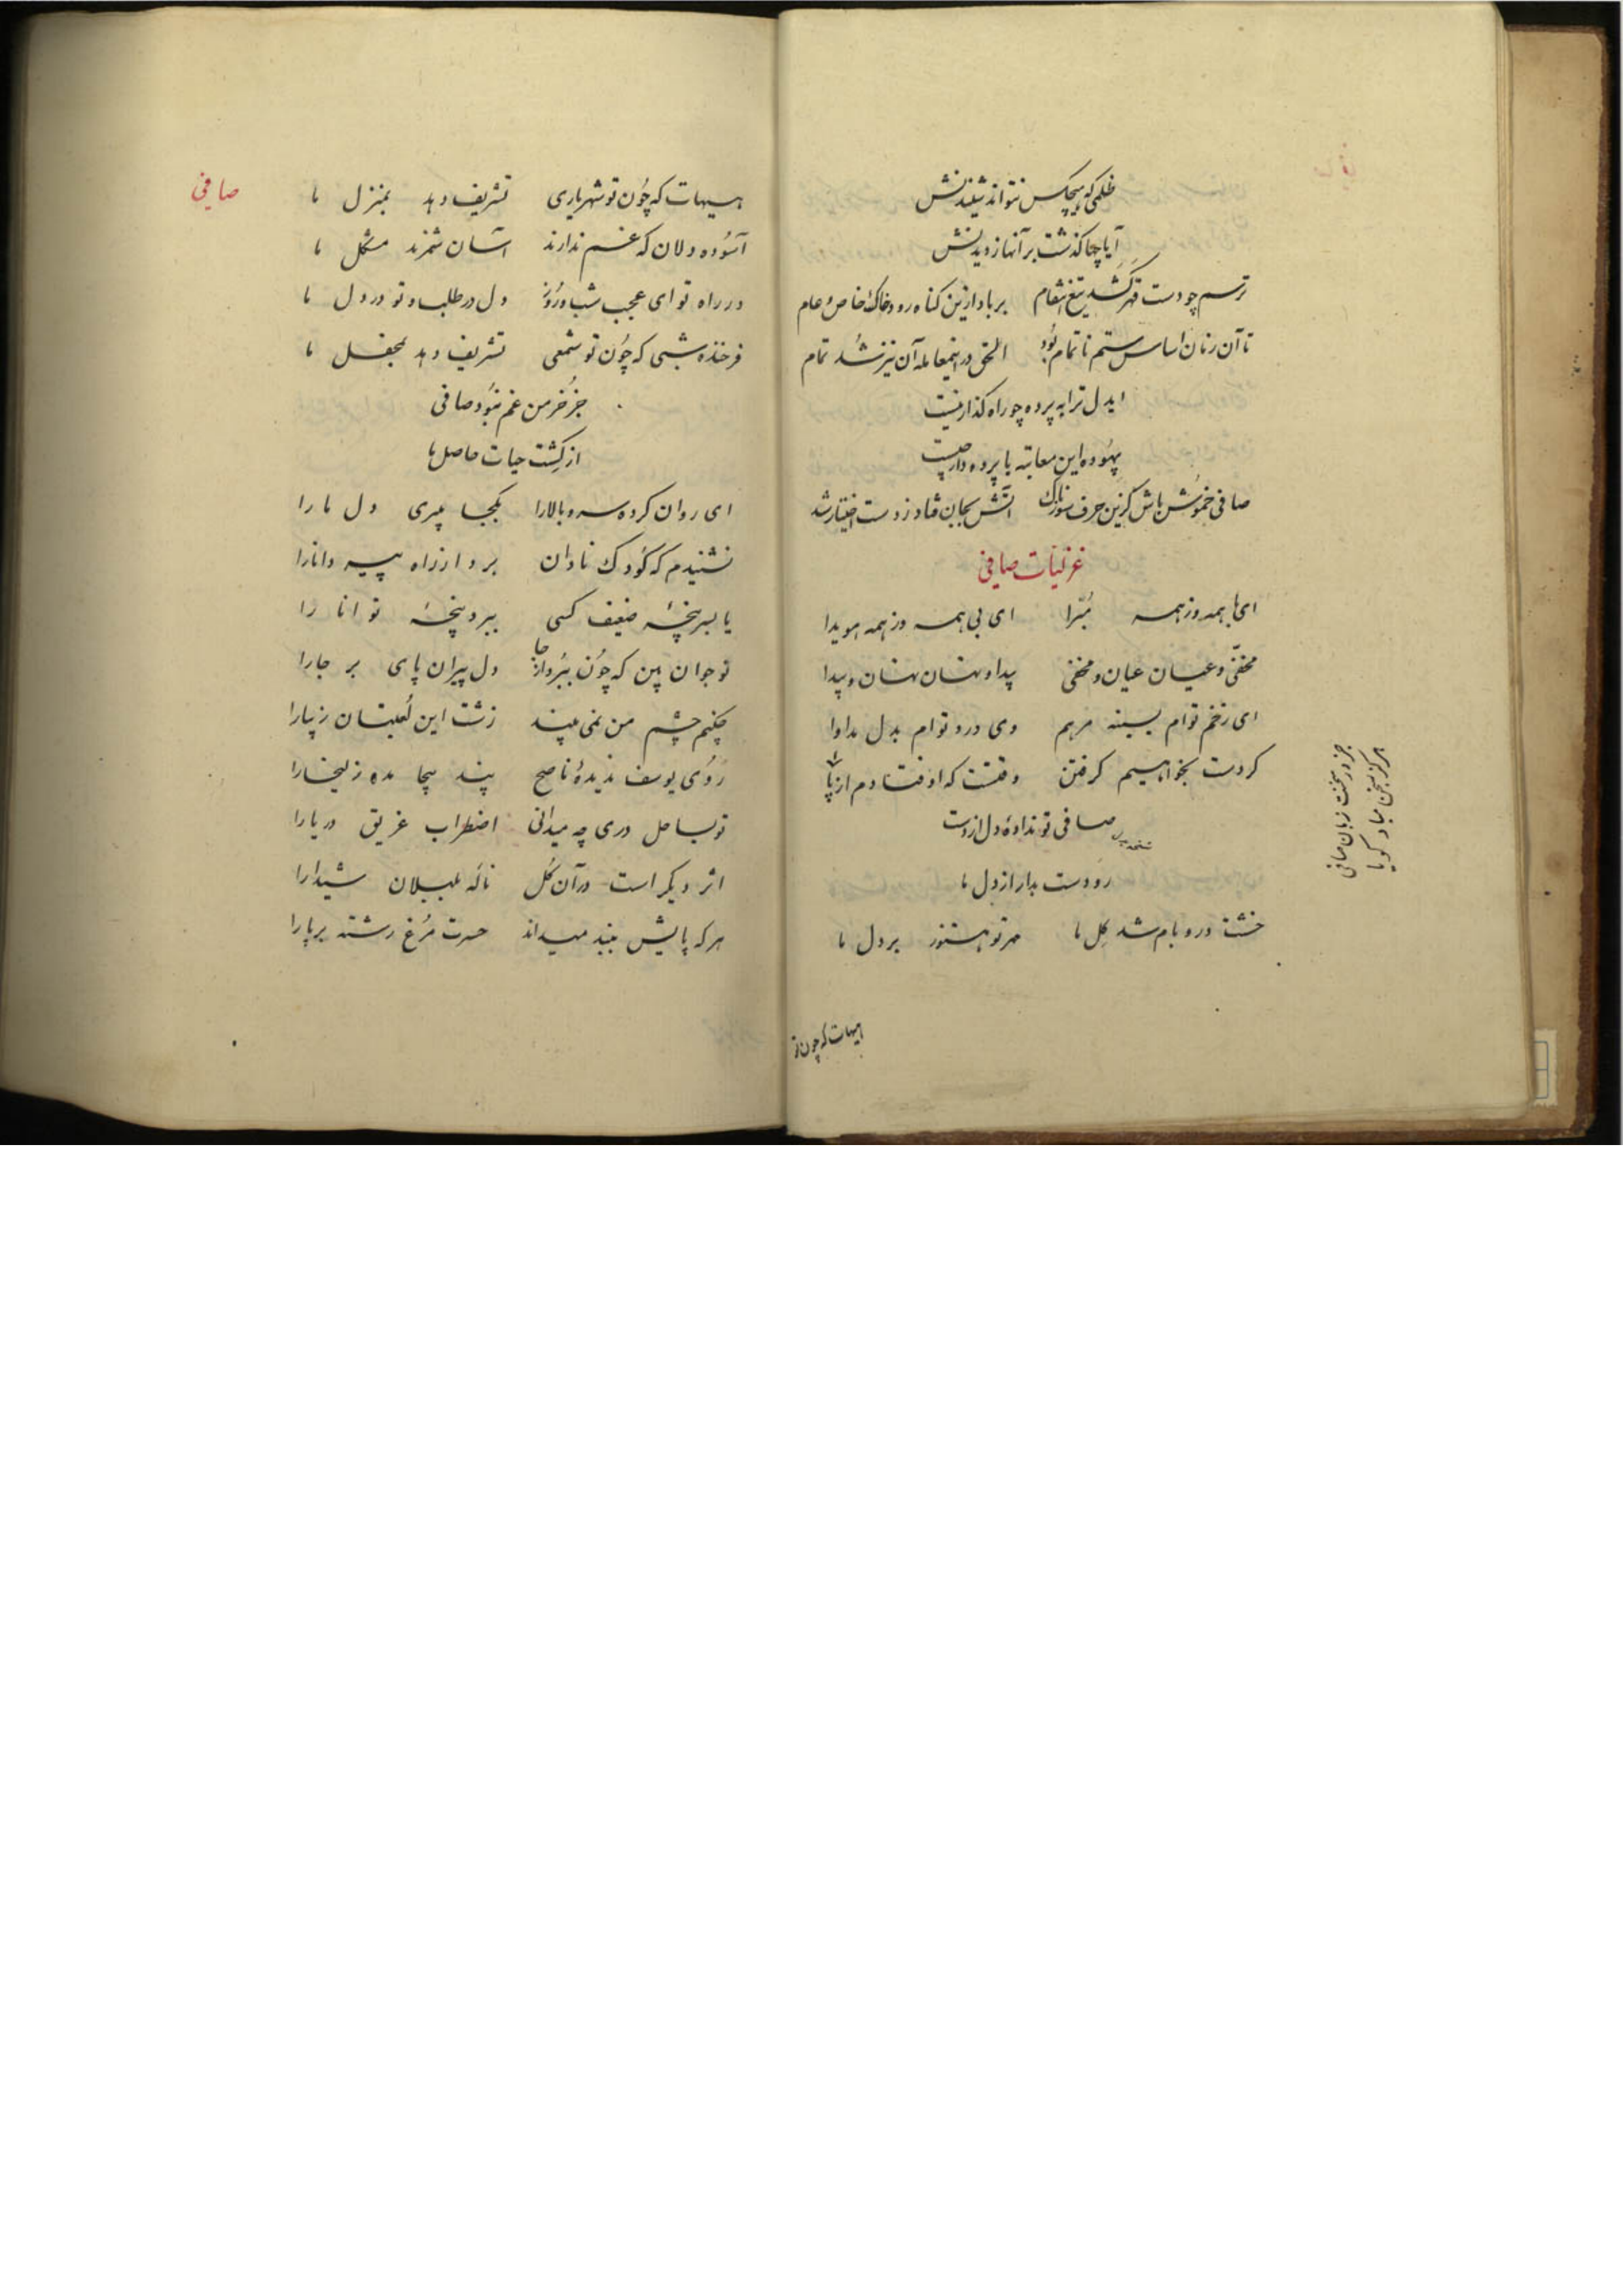 ظلمی که هیچکس نتواند شنیدنش
آیا چها گذشت بر آنها ز دیدنش
ترسم چو دست قهر کشد تیغ انتقام بر باد ازین گناه رود خاک خاص و عام
تا آن زمان اساس ستم ناتمام بود الحق در اینمعامله آن نیز شد تمام
ایدل ترا به پرده چو راه گذار نیست
بیهوده این معاتبه با پرده دار چیست
صافی خموش باش کزین حرف سوزناک آتش بجان فتاد ز دست اختیار شد
غزلیات صافی
ای با همه وز همه مبرا ای بی همه وز همه هویدا
مخفی و عیان عیان و مخفی پیدا و نهان نهان و پیدا
ای زخم توام بسینه مرهم وی درد توام بدل مداوا
گر دست بخواهیم گرفتن وقتست که اوفتادم از پا
صافی تو نداده دل از دست
رو دست بدار از دل ما
خشت در و بام شد گل ما مهر تو هنوز بر دل ما
جز در سخنت زبان صافی
هرگز بسخن مباد گویا
هیهات که چون تو
صافی
هیهات که چون تو شهریاری تشریف دهد بمنزل ما
آسوده دلان که غم ندارند آسان شمرند مشکل ما
در راه تو ای عجب شب و روز دل در طلب و تو در دل ما
فرخنده شبی که چون تو شمعی تشریف دهد بمحفل ما
جز خرمن غم نبود صافی
از کشت حیات حاصل ما
ای روان کرده سرو بالا را بکجا میبری دل ما را
نشنیدم که کودک نادان برد از راه پیر دانا را
یا بسرپنجه ضعیف کسی ببرد پنجه توانا را
نوجوان بین که چون ببرد از جا دل پیران پای بر جا را
چکنم چشم من نمی بیند زشت این لعبتان زیبا را
روی یوسف ندیده ناصح پند بیجا مده زلیخا را
تو بساحل دری چه میدانی اضطراب غریق دریا را
اثر دیگر است در آن گل ناله بلبلان شیدا را
هر که پایش ببند میداند حسرت مرغ رشته بر پا را